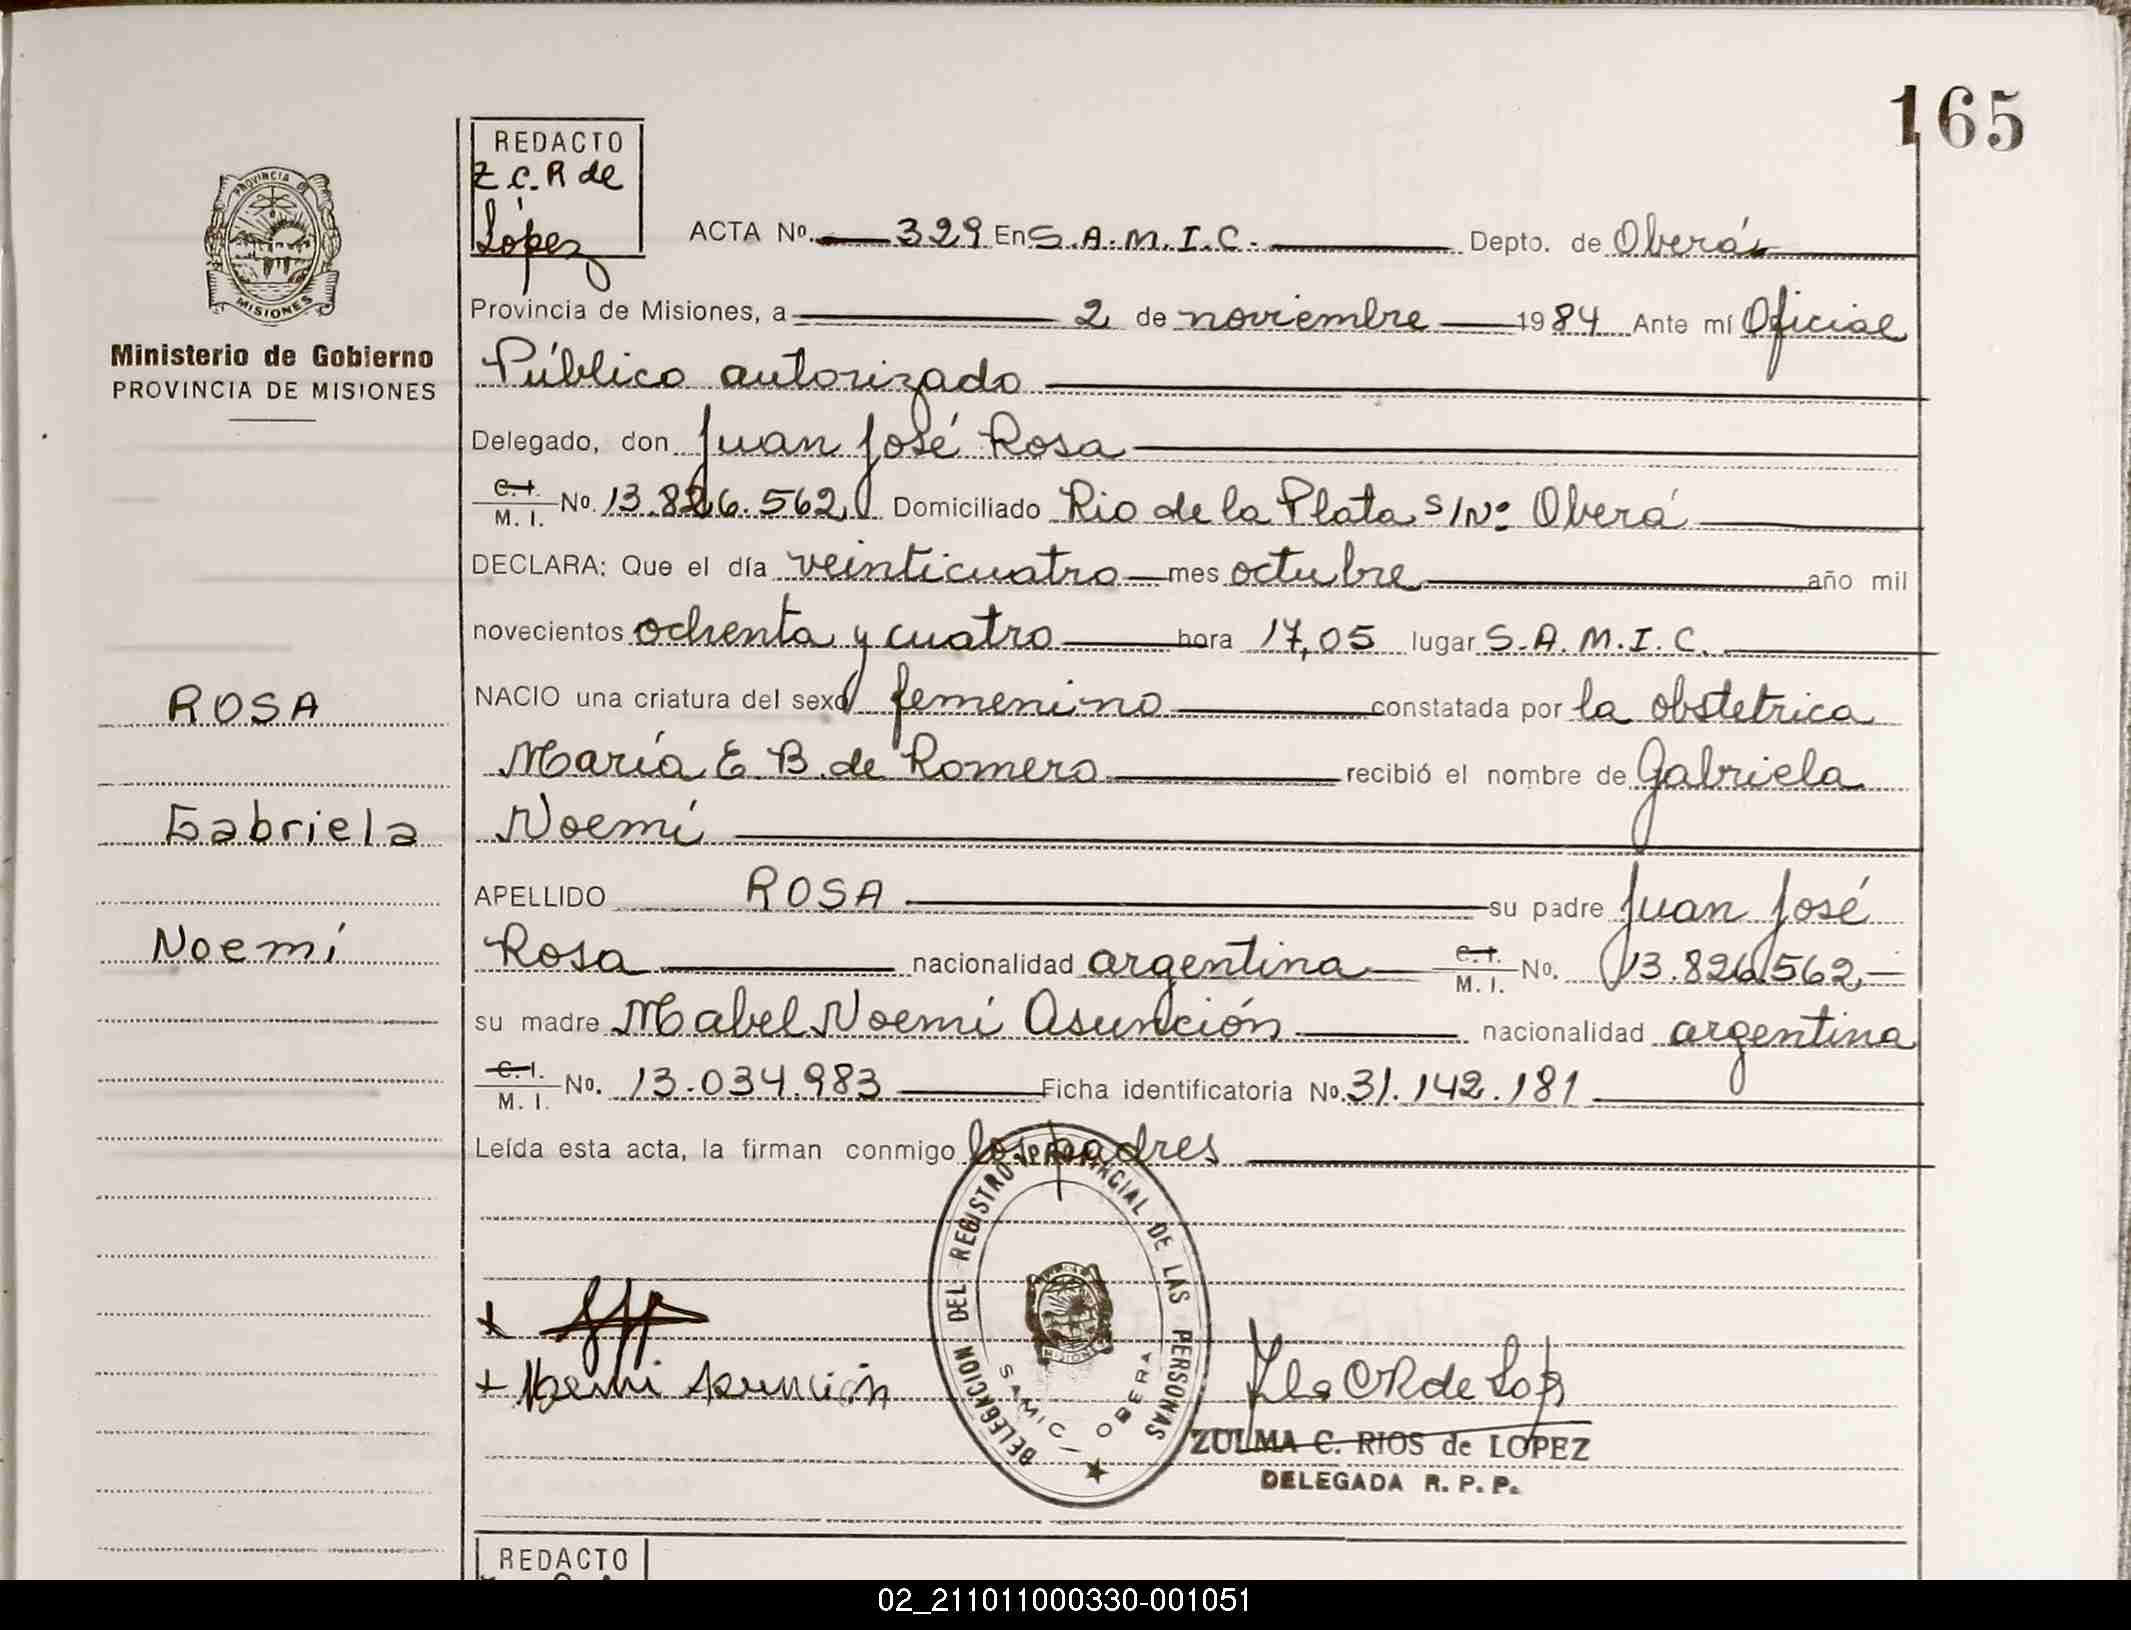 165
REDACTO
Z. C. R de
López
PROVINCIA DE
MISIONES
Ministerio de Gobierno
PROVINCIA DE MISIONES
ACTA No. 329 En S.A.M.I.C. Depto. de Oberá
Provincia de Misiones, a 2 de noviembre 1984 Ante mí Oficial
Público autorizado
Delegado, don Juan José Rosa
C.I. M. I. No. 13.826.562 Domiciliado Rio de la Plata s/Nº Oberá
DECLARA: Que el día veinticuatro mes octubre año mil
novecientos ochenta y cuatro hora 17,05 lugar S.A.M.I.C.
NACIO una criatura del sexo femenino constatada por la obstetrica
María E. B. de Romero recibió el nombre de Gabriela
Noemí
APELLIDO ROSA su padre Juan José
Rosa nacionalidad argentina C.I. M. I. No. 13.826.562
su madre Mabel Noemí Asunción nacionalidad argentina
C.I. M. I. No. 13.034.983 Ficha identificatoria No. 31.142.181
Leída esta acta, la firman conmigo los padres
ROSA
Gabriela
Noemí
DELEGACION DEL REGISTRO PROVINCIAL DE LAS PERSONAS
SAMIC - OBERA
Noemi Asunción
ZULMA C. RIOS de LOPEZ
DELEGADA R. P. P.
REDACTO
02_211011000330-001051